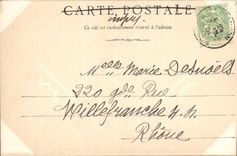 CARTE POSTALE
Ce côté est exclusivement réservé à l'adresse.
Melle Marie Desnoëls
220 gde Rue
Villefranche s. S.
Rhône